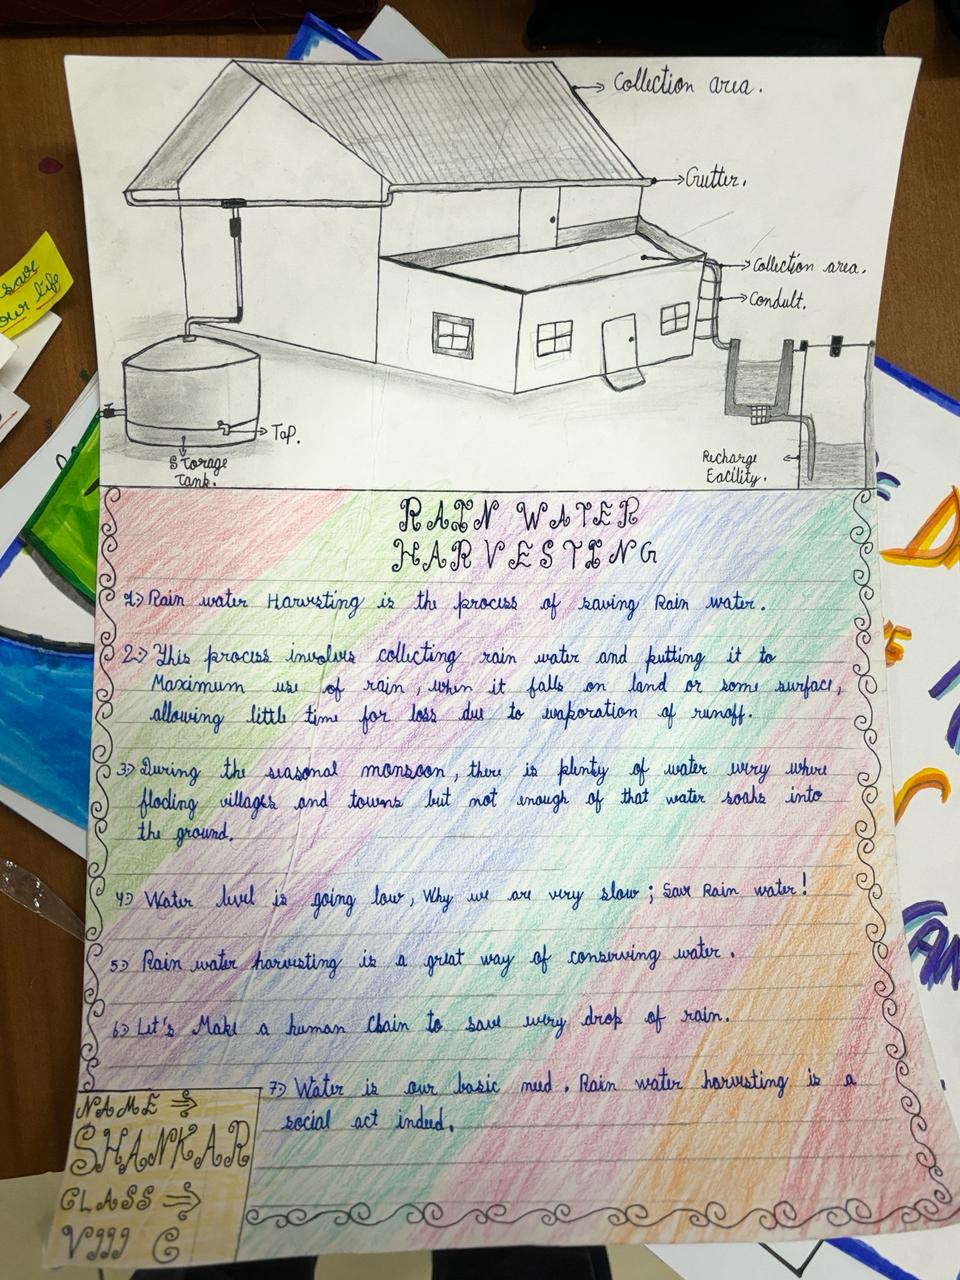 Collection area.
Grutter.
Collection area.
Condult.
Tap.
Storage
Tank.
Recharge
Eacility.
RAIN WATER
HARVESTING
1) Rain water Harvesting is the process of saving Rain water.
2) This process involves collecting rain water and putting it to
Maximum use of rain, when it falls on land or some surface,
allowing little time for loss due to evaporation of runoff.
3) During the seasonal monsoon, there is plenty of water every where
floding villages and towns but not enough of that water soaks into
the ground.
4) Water level is going low, Why we are very slow; Save Rain water!
5) Rain water harvesting is a great way of conserving water.
6) Let's Make a human Chain to save every drop of rain.
7) Water is our basic need. Rain water harvesting is a
social act indeed.
NAME ⇒
SHANKAR
CLASS ⇒
VIII C
save
our life
AN